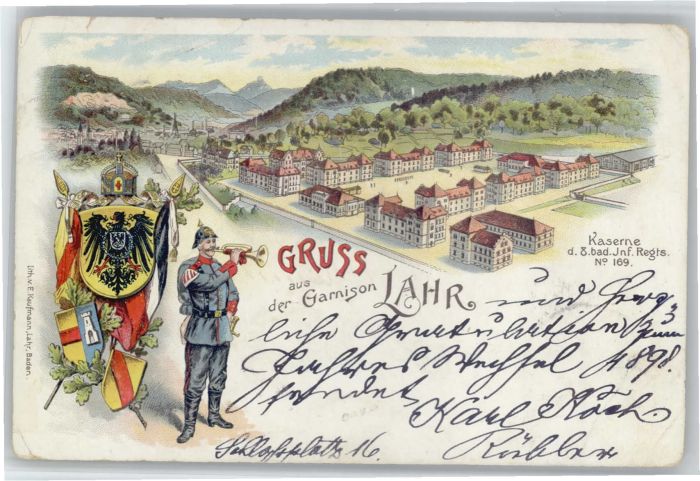 GRUSS
aus
der Garnison LAHR
Kaserne
d. 8. bad. Inf. Regts.
No 169.
und herz-
liche Gratulation zum
Jahres Wechsel 1898.
sendet
Karl Koch.
Kübler
Schloßplatz 16.
Lith. v. E. Kaufmann, Lahr, Baden.